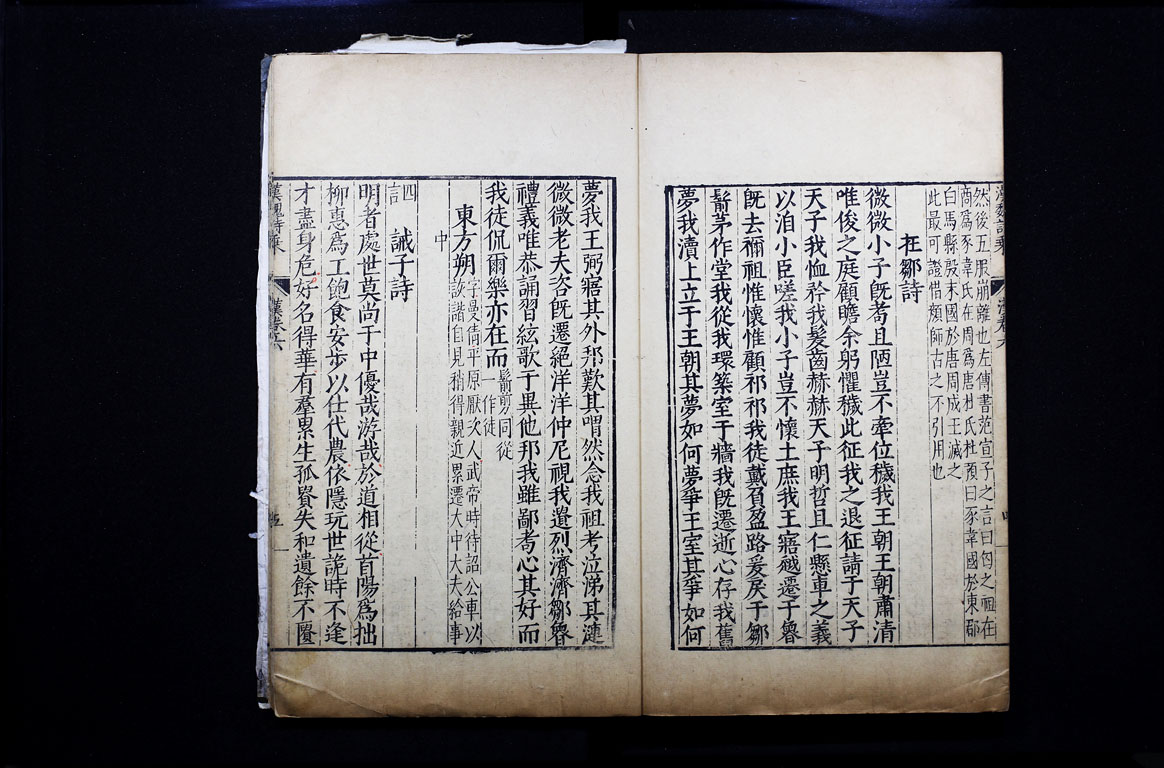 漢魏詩乘
漢卷六
四
然後五服崩離也左傳書范宣子之言曰匄之祖在
商為豕韋氏在周為唐杜氏杜預曰豕韋國於東郡
白馬縣殷末國於唐周成王滅之
此最可證惜顏師古之不引用也
在鄒詩
微微小子旣耇且陋豈不牽位穢我王朝王朝肅清
唯俊之庭顧瞻余躬懼穢此征我之退征請于天子
天子我恤矜我髮齒赫赫天子明哲且仁縣車之義
以洎小臣嗟我小子豈不懷土庶我王寤越遷于魯
旣去禰祖惟懷惟顧祁祁我徒戴負盈路爰戾于鄒
鬋茅作堂我從我環築室于牆我旣遷逝心存我舊
夢我瀆上立于王朝其夢如何夢爭王室其爭如何
夢我王弼寤其外邦歎其喟然念我祖考泣涕其漣
微微老夫咨旣遷絕洋洋仲尼視我遺烈濟濟鄒魯
禮義唯恭誦習絃歌于異他邦我雖鄙耇心其好而
我徒侃爾樂亦在而鬋剪同從一作徒
東方朔字曼倩平原厭次人武帝時待詔公車以
詼諧自見稍得親近累遷大中大夫給事
中
四言
誡子詩
明者處世莫尚于中優哉游哉於道相從首陽為拙
柳惠為工飽食安步以仕代農依隱玩世詭時不逢
才盡身危好名得華有羣累生孤貴失和遺餘不匱
漢魏詩乘
漢卷六
五